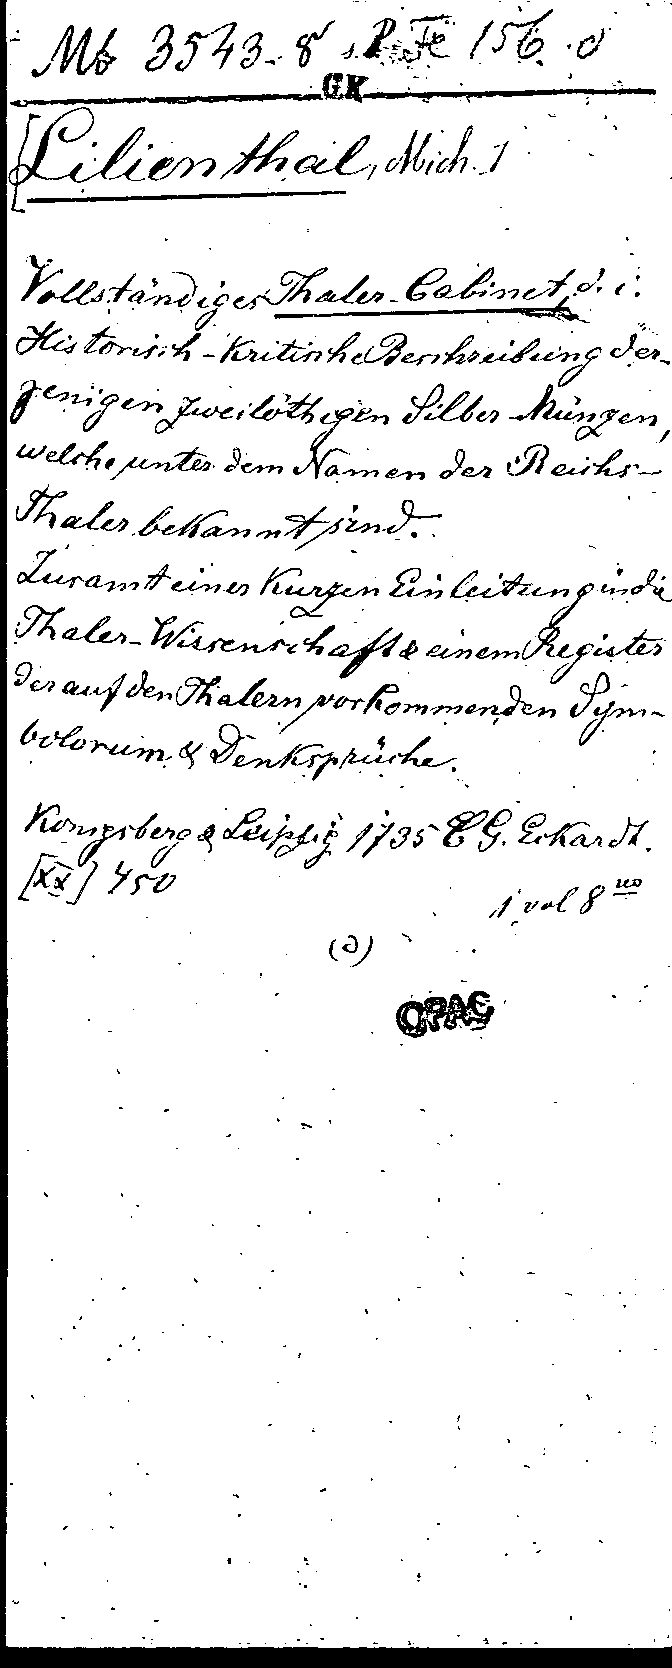 Mb 3543. 8 s. P. Fe 156. d
GK
[Lilienthal, Mich.]
Vollständiges Thaler-Cabinet, d. i.
Historisch-Kritische Beschreibung der-
jenigen zweilöthigen Silber-Münzen,
welche unter dem Namen der Reichs-
Thaler bekannt sind.
Zusamt einer Kurzen Einleitung in die
Thaler-Wissenschaft & einem Register
der auf den Thalern vorkommenden Sym-
bolorum & Denksprüche.
Königsberg & Leipzig 1735 C G. Eckardt.
[XX] 450
1 vol 8 no
(a)
OPAC